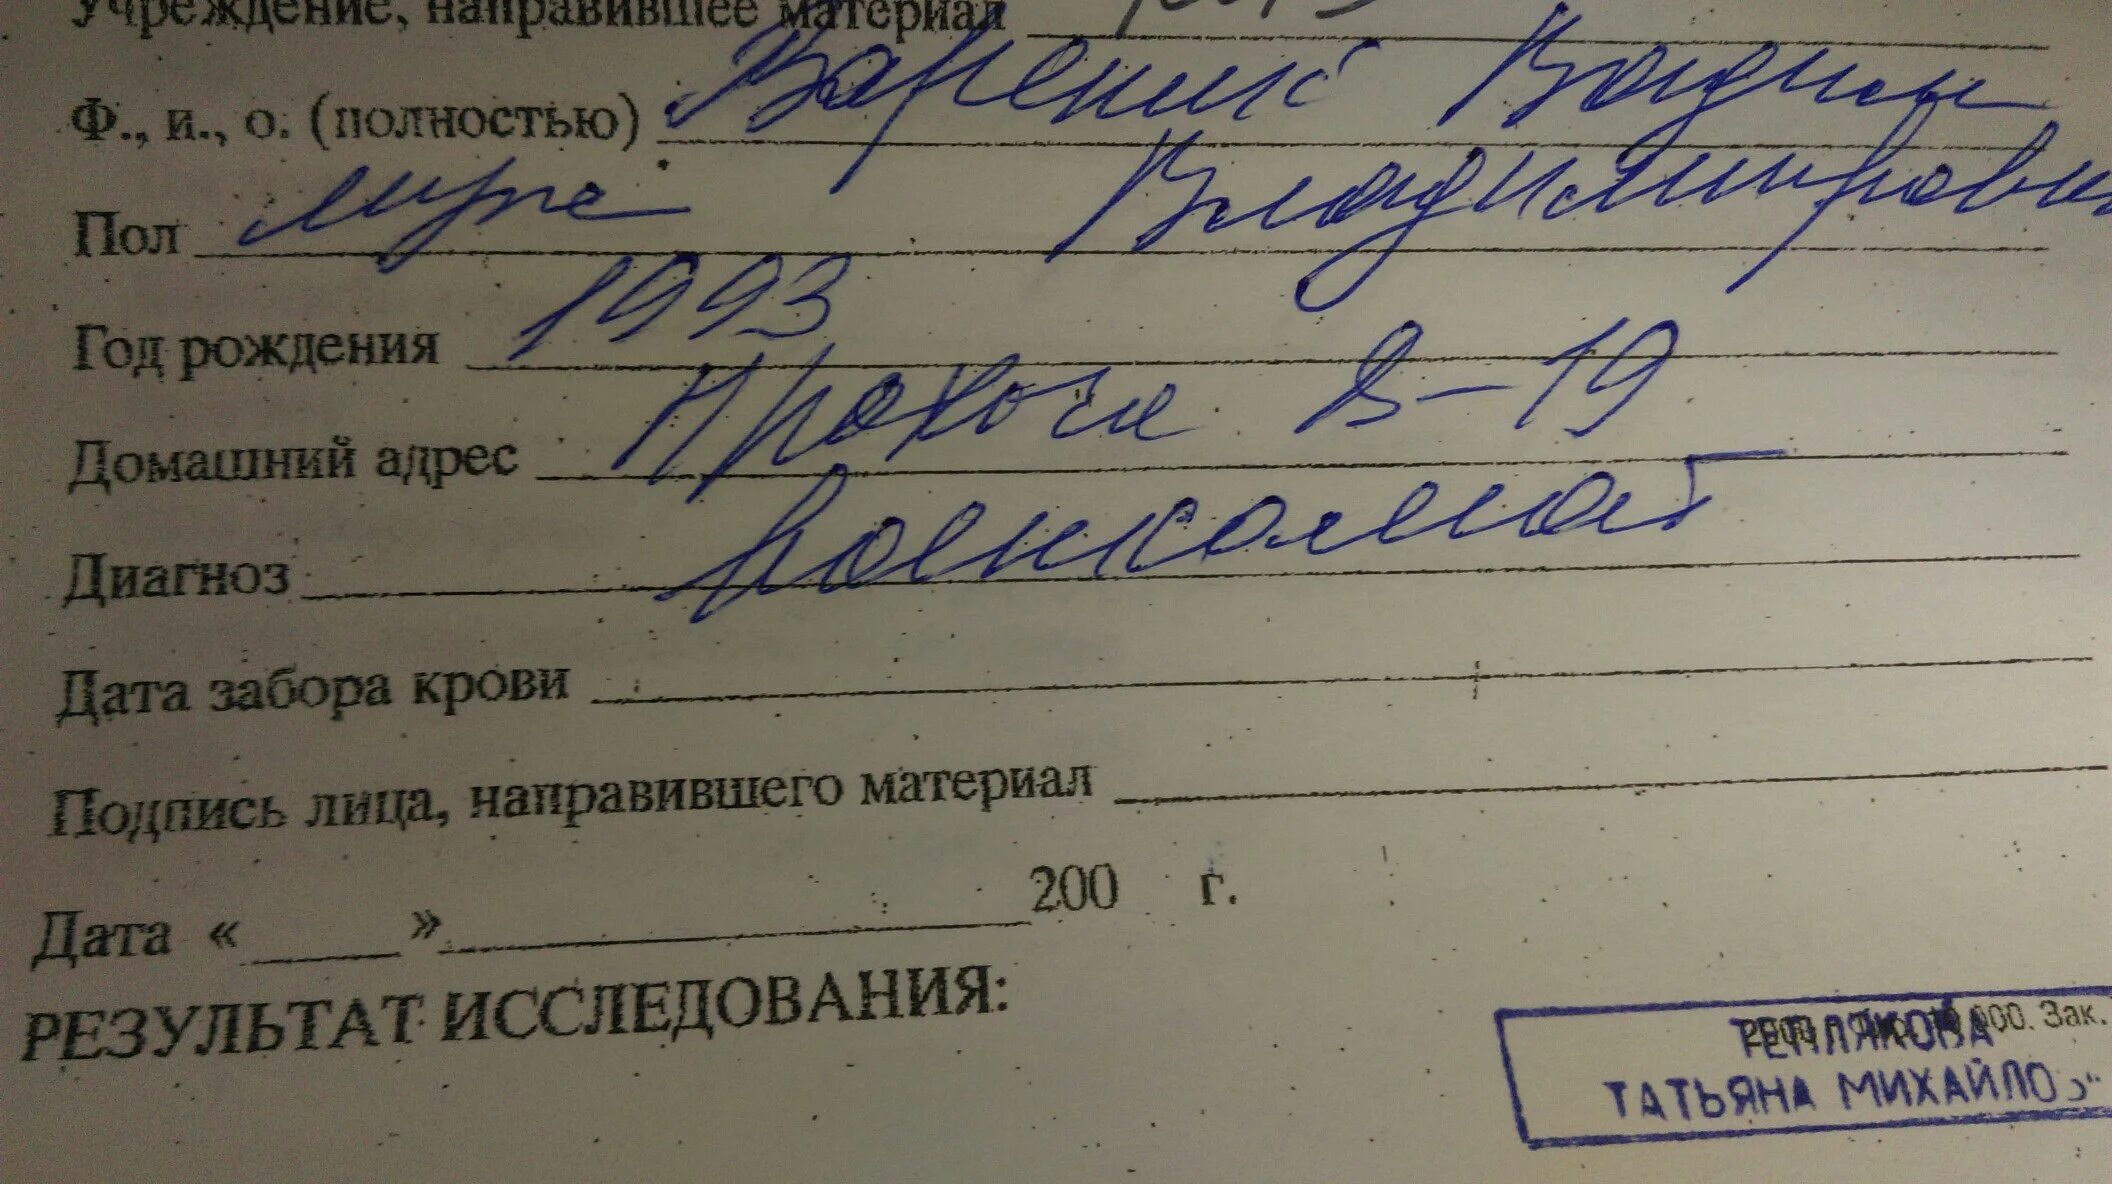 Учреждение, направившее материал
Ф., и., о. (полностью) Вареник Вадим
Владимирови
Пол муж
Год рождения 1993
Домашний адрес 8-19
Диагноз военкомат
Дата забора крови
Подпись лица, направившего материал
Дата « » 200 г.
РЕЗУЛЬТАТ ИССЛЕДОВАНИЯ:
000. Зак.
ТЕПЛЯКОВА
ТАТЬЯНА МИХАЙЛО